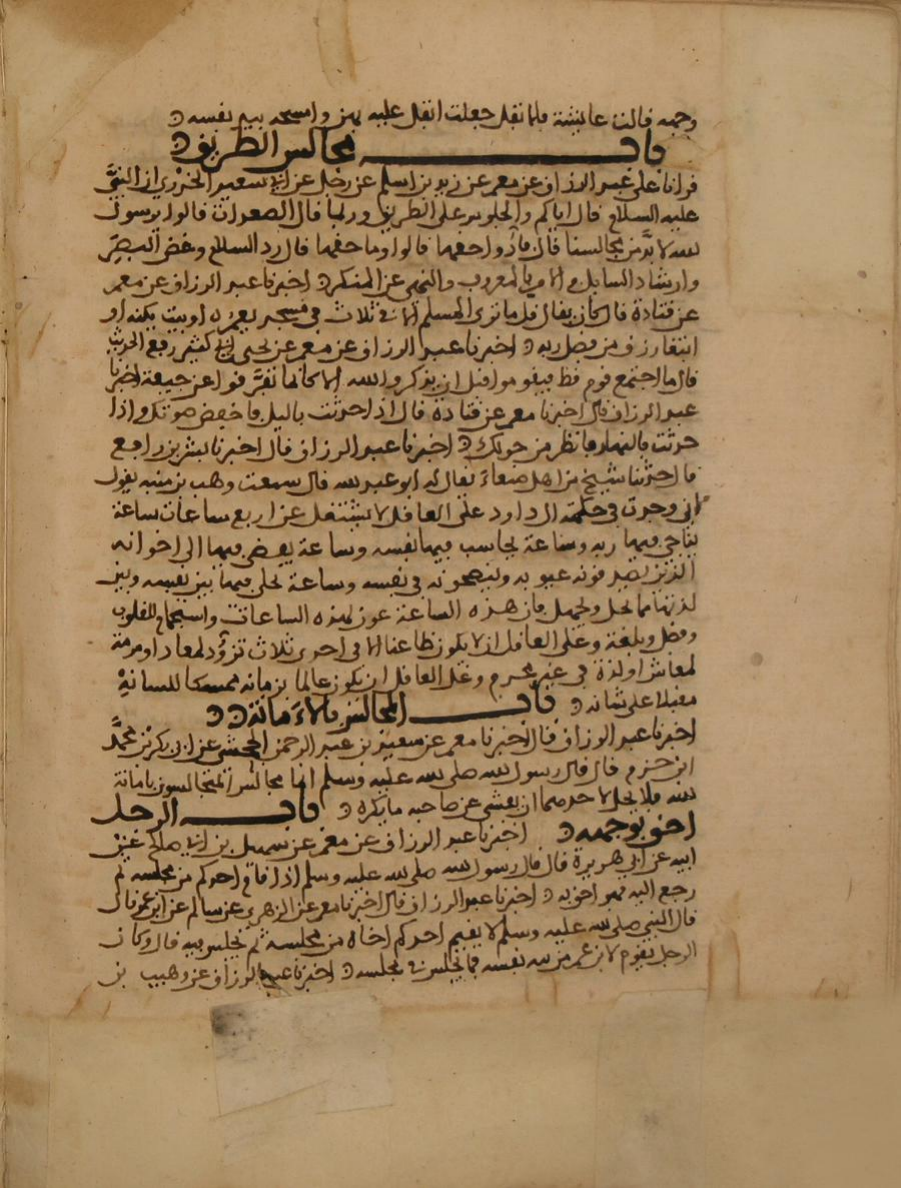 وجهه قالت عائشة فلما ثقل جعلت اتفل عليه بهن وامسحه بيد نفسه
باب مجالس الطريق
قرانا على عبد الرزاق عن معمر عن زيد بن اسلم عن رجل عن ابي سعيد الخدري ان النبي
عليه السلام قال اياكم والجلوس على الطريق وربما قال الصعدات قالوا يرسول
الله لا بد من مجالسنا قال فادوا حقها قالوا وما حقها قال رد السلام وغض البصر
وارشاد السابل والامر بالمعروف والنهي عن المنكر اخبرنا عبد الرزاق عن معمر
عن قتادة قال كان يقال قل ما ترى المسلم الا في ثلاث في مسجد يعمره او بيت يكنه او
ابتغا رزق من فضل ربه اخبرنا عبد الرزاق عن معمر عن يحيى بن ابي كثير رفع الحديث
قال ما اجتمع قوم قط فيقوموا قبل ان يذكروا الله الا كانما تفرقوا عن جيفة اخبرنا
عبد الرزاق قال اخبرنا معمر عن قتادة قال اذا حدثت بالليل فاخفض صوتك واذا
حدثت بالنهار فانظر من حولك اخبرنا عبد الرزاق قال اخبرنا بشر بن رافع
قال حدثنا شيخ من اهل صنعاء يقال له ابو عبد الله قال سمعت وهب بن منبه يقول
اني وجدت في حكمة ال داود على العاقل لا يشتغل عن اربع ساعات ساعة
يناجي فيها ربه وساعة يحاسب فيها نفسه وساعة يفضي فيها الى اخوانه
الذين يصدقونه عيوبه وينصحونه في نفسه وساعة يخلي فيها بين نفسه وبين
لذتها مما يحل ويجمل فان هذه الساعة عون لهذه الساعات واستجمام للقلوب
وفضل وبلغة وعلى العاقل ان لا يكون ظاعنا الا في احدى ثلاث تزود لمعاد او مرمة
لمعاش او لذة في غير محرم وعلى العاقل ان يكون عالما بزمانه ممسكا للسانه
مقبلا على شانه باب المجالس بالامانة
اخبرنا عبد الرزاق قال اخبرنا معمر عن سعيد بن عبد الرحمن الجحشي عن ابي بكر بن محمد
ابن حزم قال قال رسول الله صلى الله عليه وسلم انما مجالس المتجالسون بامانة
الله فلا يحل لاحدهما ان يفشي عن صاحبه ما يكره باب الرجل
احق بوجهه اخبرنا عبد الرزاق عن معمر عن سهيل بن ابي صالح عن
ابيه عن ابي هريرة قال قال رسول الله صلى الله عليه وسلم اذا قام احدكم من مجلسه ثم
رجع اليه فهو احق به اخبرنا عبد الرزاق قال اخبرنا معمر عن الزهري عن سالم عن ابن عمر قال
قال النبي صلى الله عليه وسلم لا يقيم احدكم اخاه من مجلسه ثم يجلس فيه قال وكان
الرجل يقوم لابن عمر من نفسه فما يجلس في مجلسه اخبرنا عبد الرزاق عن وهيب بن